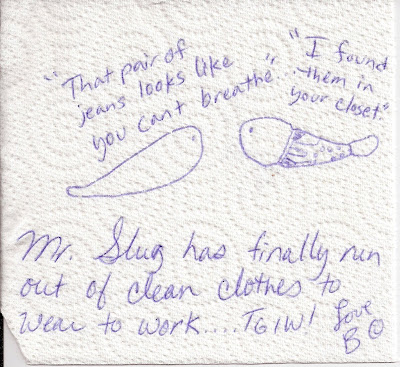 "That pair of
jeans looks like
you cant breathe"
"I found
them in
your closet."
Mr. Slug has finally run
out of clean clothes to
wear to work....TGIW!
Love
B